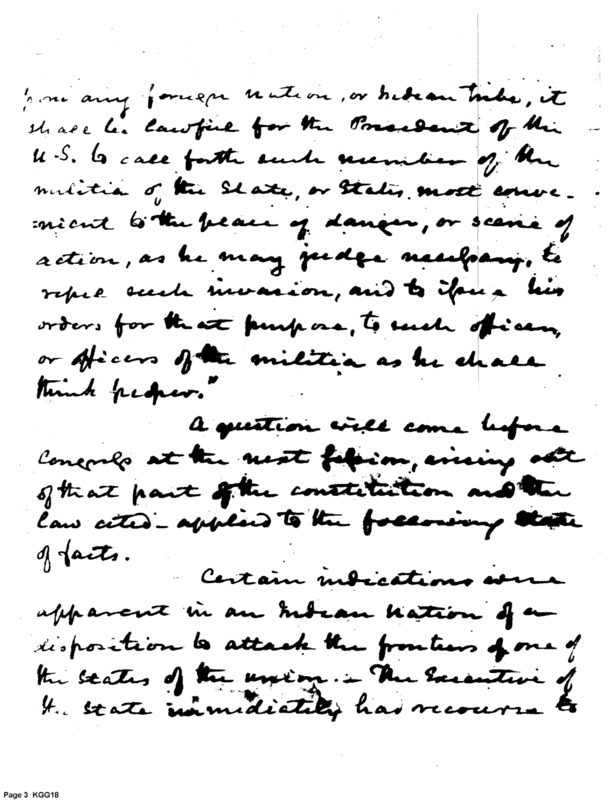 from any foreign nation, or Indian tribe, it
shall be lawful for the President of the
U.S. to call forth such number of the
militia of the State, or States, most conve-
=nient to the place of danger, or scene of
action, as he may judge necessary, to
repel such invasion, and to issue his
orders for that purpose, to such officer,
or officers of the militia as he shall
think proper."
A question will come before
Congress at the next Session, arising out
of that part of the constitution and the
law cited - applied to the following state
of facts.
Certain indications were
apparent in an Indian Nation of a
disposition to attack the frontiers of one of
the States of the union. - The Executive of
the State immediately had recourse to
Page 3 KGG18